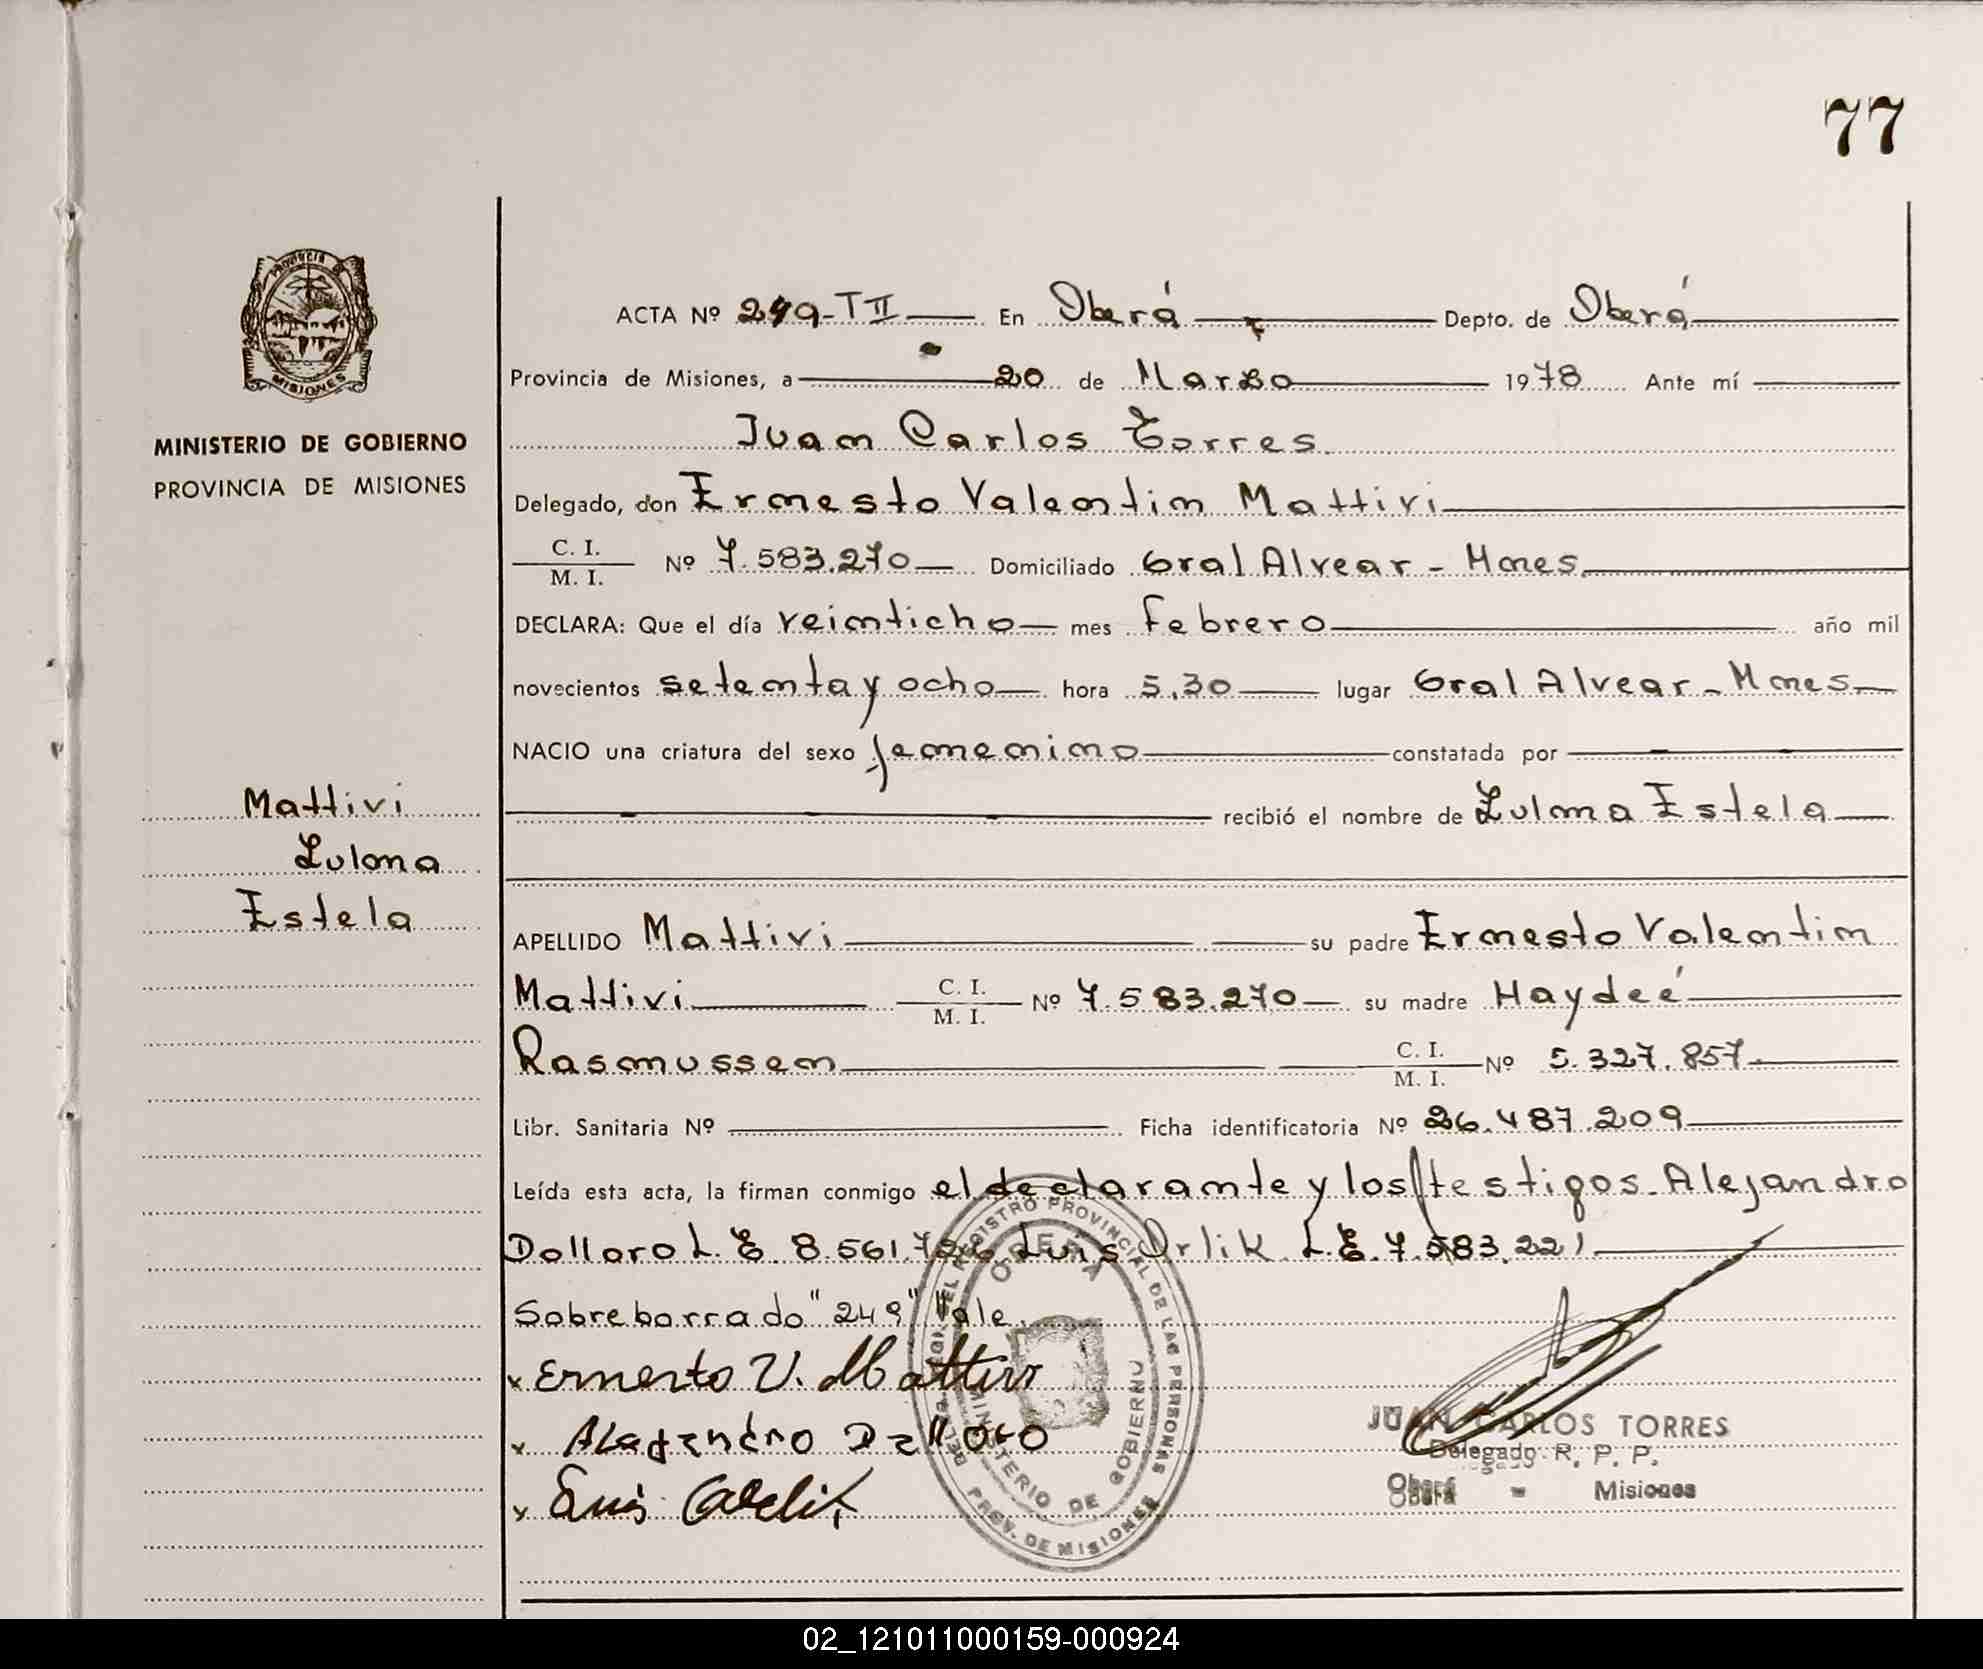 77
ACTA Nº 249-TII En Oberá Depto. de Oberá
Provincia de Misiones, a 20 de Marzo 1978 Ante mí
Juan Carlos Torres
MINISTERIO DE GOBIERNO
PROVINCIA DE MISIONES
Delegado, don Ernesto Valentin Mattivi
C. I.
M. I. Nº 7.583.270 Domiciliado Gral Alvear - Mnes
DECLARA: Que el día veinticho mes febrero año mil
novecientos setenta y ocho hora 5,30 lugar Gral Alvear - Mnes
NACIO una criatura del sexo femenino constatada por
recibió el nombre de Zulma Estela
Mattivi
Zulma
Estela
APELLIDO Mattivi su padre Ernesto Valentin
Mattivi C. I. M. I. Nº 7.583.270 su madre Haydeé
Rasmussen C. I. M. I. Nº 5.327.857
Libr. Sanitaria Nº Ficha identificatoria Nº 26.487.209
Leída esta acta, la firman conmigo el declarante y los testigos - Alejandro
Dollaro L.E. 8.561.726 Luis Orlik L.E. 7.583.221
Sobreborrado "249" Vale.
x Ernesto V. Mattivi
x Alejandro
x Luis
REGISTRO PROVINCIAL DE LAS PERSONAS
OBERA
MINISTERIO DE GOBIERNO
PROV. DE MISIONES
JUAN CARLOS TORRES
Delegado R. P. P.
Oberá - Misiones
02_121011000159-000924